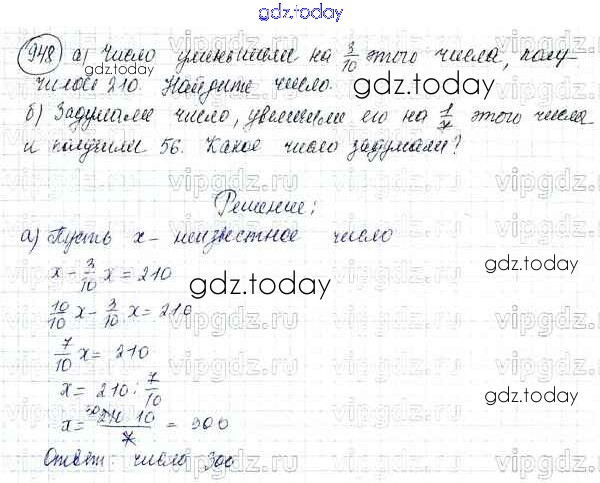 gdz.today
948) а) Число уменьшили на 3/10 этого числа, полу-
чилось 210. Найдите число.
б) Задумали число, увеличили его на 1/7 этого числа
и получили 56. Какое число задумали?
Решение:
а) Пусть x - неизвестное число
x - 3/10 x = 210
10/10 x - 3/10 x = 210
7/10 x = 210
x = 210 : 7/10
x = 30 210 · 10 / 7 = 300
Ответ: число 300
gdz.today
gdz.today
gdz.today
gdz.today
gdz.today
vipgdz.ru
vipgdz.ru
vipgdz.ru